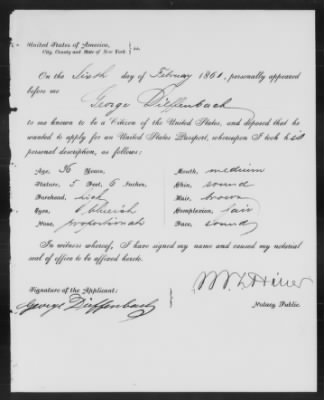 United States of America,
City, County and State of New York } ss.
On the Sixth day of February 1861, personally appeared
before me
George Dieffenbach
to me known to be a Citizen of the United States, and disposed that he
wanted to apply for an United States Passport, whereupon I took his
personal description, as follows:
Age, 36 Years, Mouth, medium
Stature, 5 Feet, 6 Inches, Chin, round
Forehead, high Hair, brown
Eyes, blueish Complexion, fair
Nose, proportionate Face, round
In witness whereof, I have signed my name and caused my notarial
seal of office to be affixed hereto.
Signature of the Applicant:
George Dieffenbach
Notary Public.